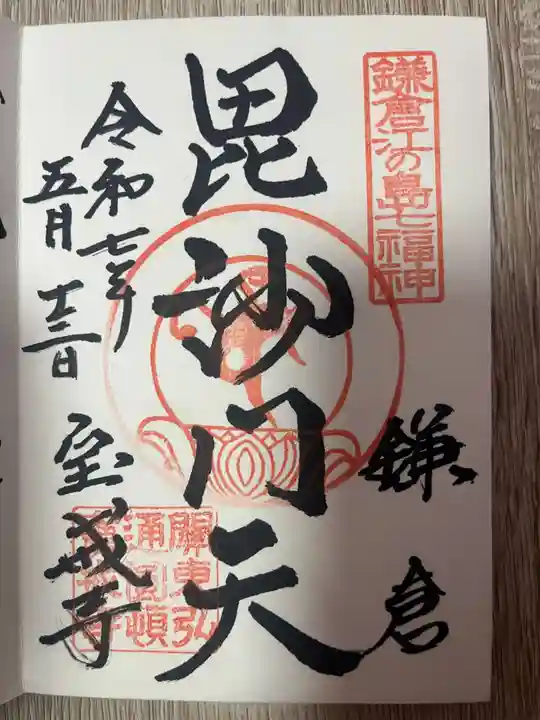 鎌倉江の島七福神
鎌倉
毘沙門天
令和七年
五月十三日
宝戒寺
關東弘
通圓頓